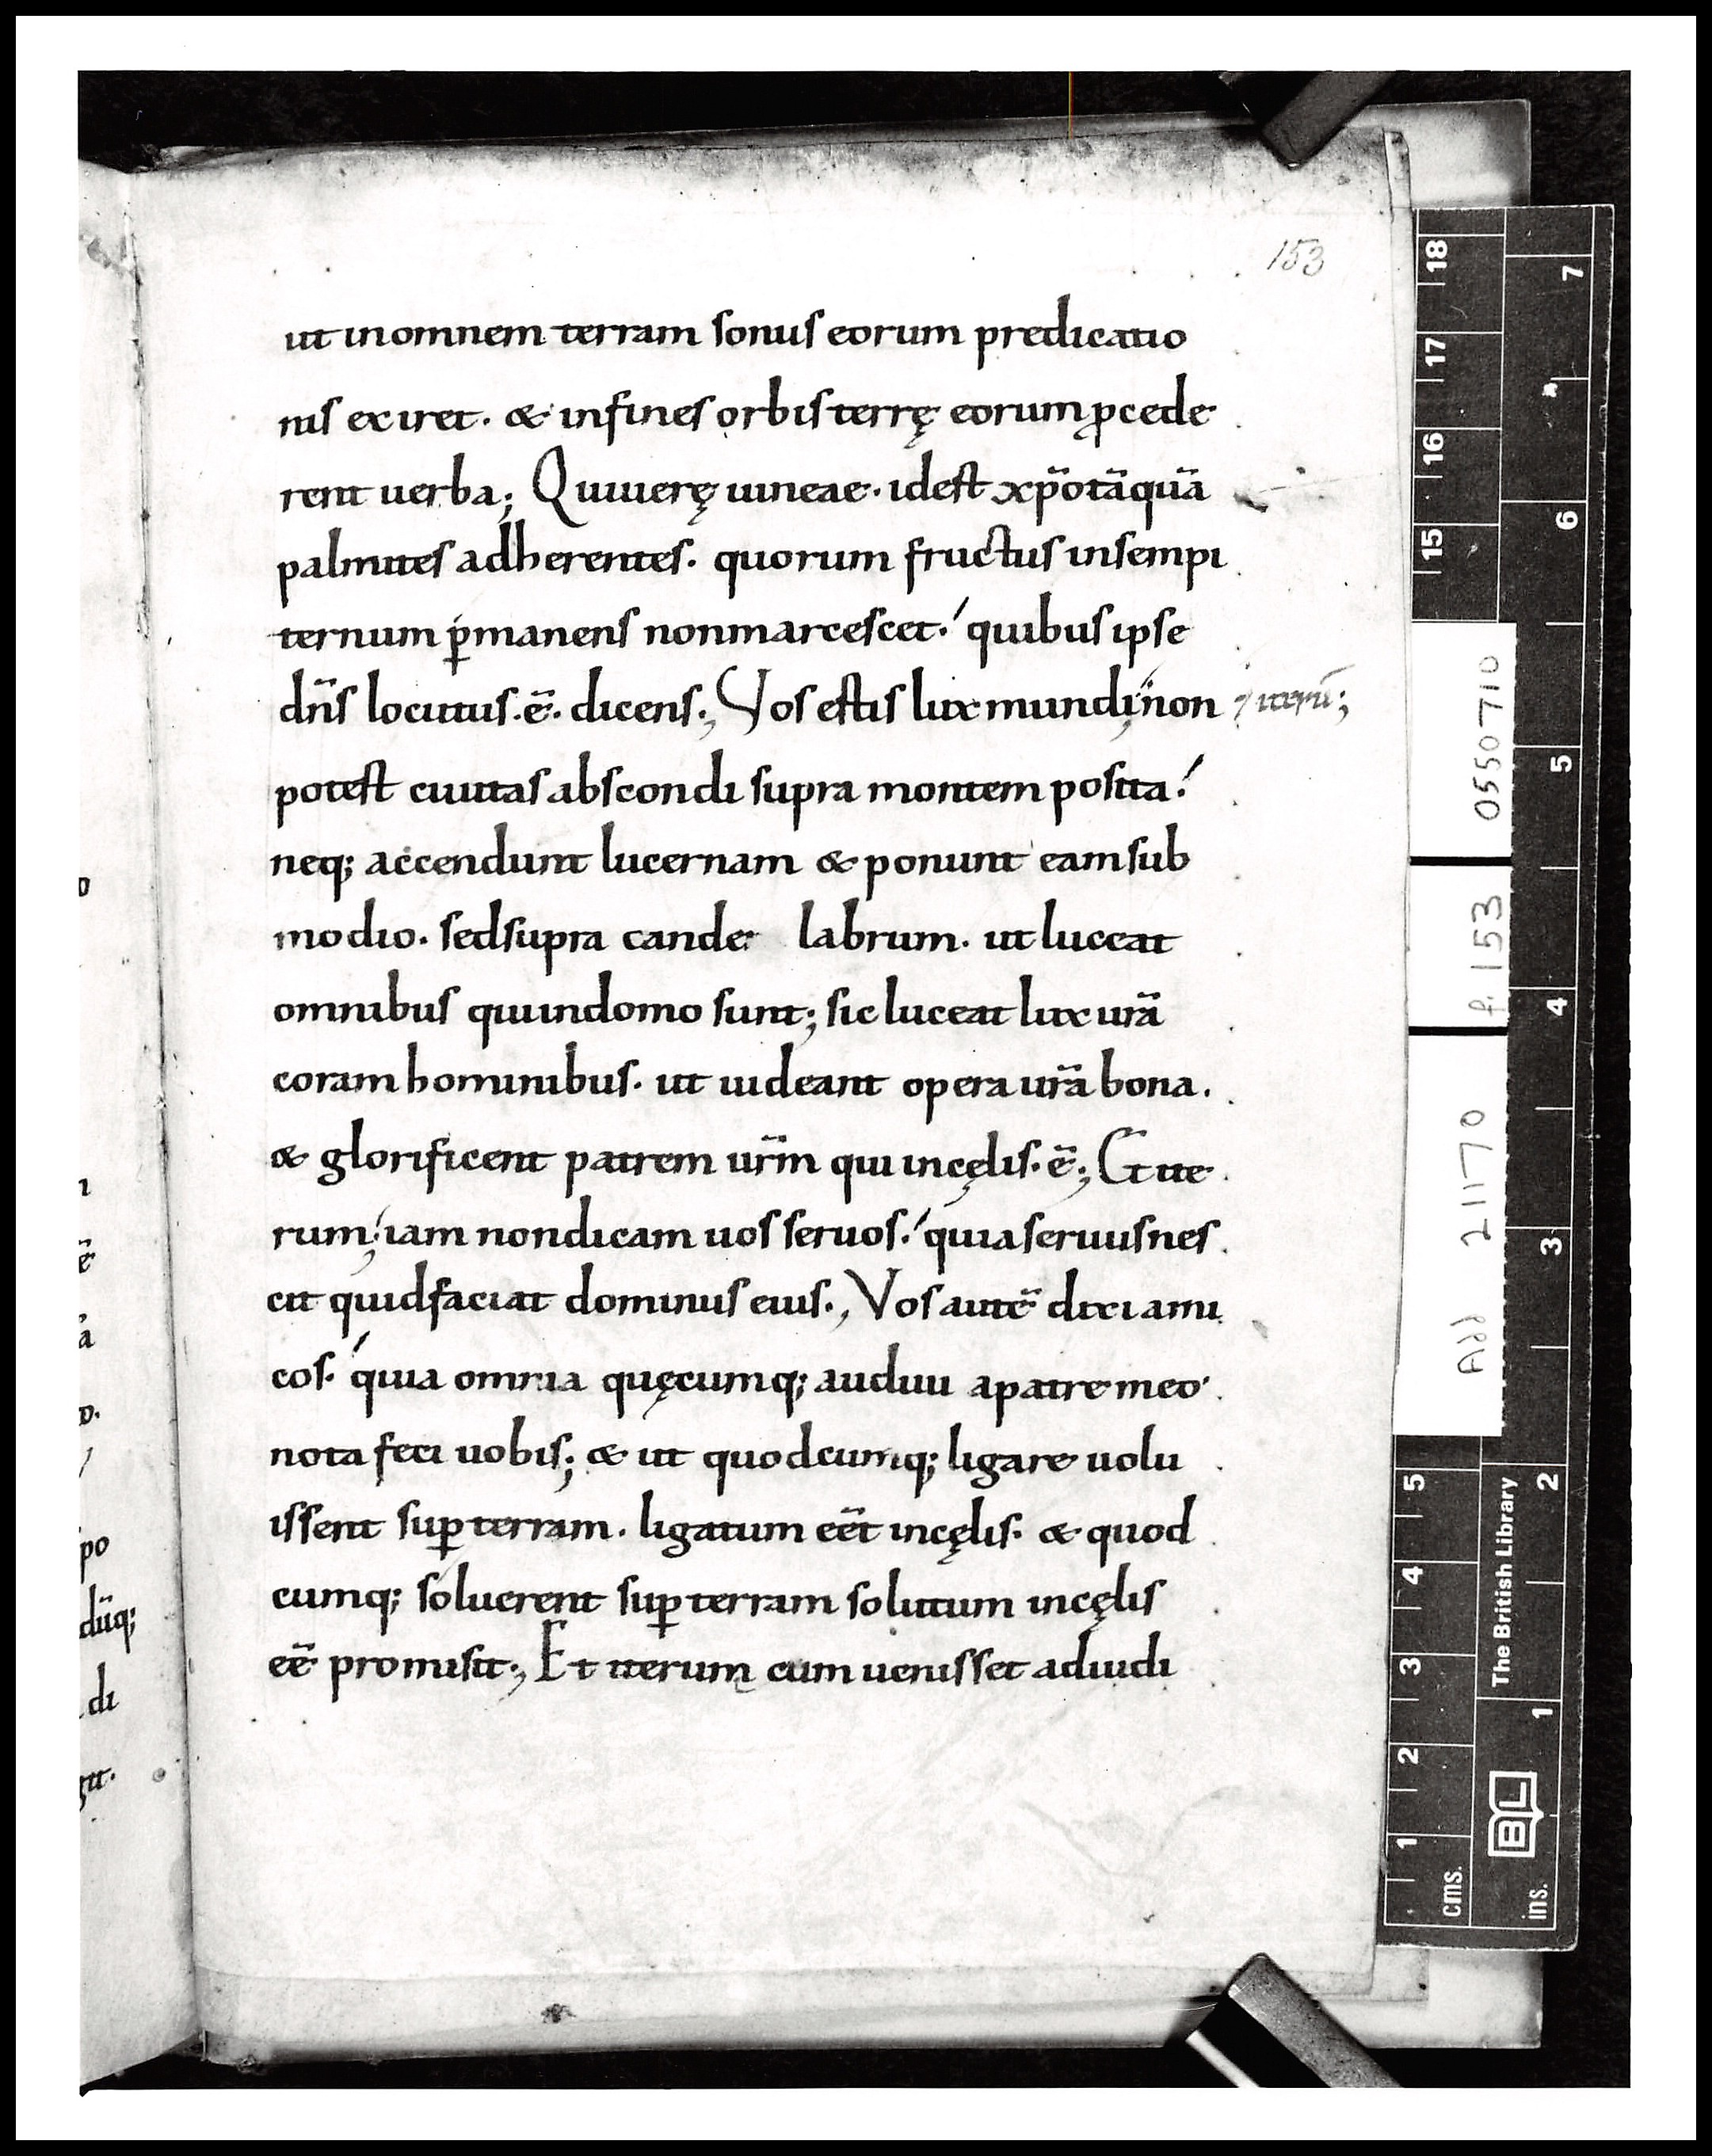 153
ut inomnem terram sonus eorum predicatio
nis exiret· & infines orbis terrę eorum ꝓcede
rent uerba; Quiuerę uineae· idest xp̄o tāquā
palmites adherentes· quorum fructus insempi
ternum ꝑmanens nonmarcescet·' quibus ipse
dn̄s locutus·ē· dicens; Vos estis lux mundi; non
iterū;
potest ciuitas abscondi supra montem posita·'
neq; accendunt lucernam & ponunt eam sub
modio· sedsupra cande labrum· ut luceat
omnibus quiindomo sunt; sic luceat lux urā
coram hominibus· ut uideant opera urā bona.
& glorificent patrem ur̄m qui incęlis·ē; Et ite
rum; iam nondicam uos seruos·' quia seruus nes
cit quidfaciat dominus eius·, Vos autē dixi ami
cos·' quia omnia quęcumq; audiui apatre meo
nota feci uobis; & ut quodcumq; ligare uolu
issent suꝑ terram· ligatum eēt incęlis· & quod
cumq; soluerent suꝑ terram solutum incęlis
eē promisit·, Et iterum cum uenisset adiudi
o
n
ē
a
o·
po
dūq;
di
git·
18
17
16
15
7
6
5
4
3
2
1
0550710
f. 153
Add 21170
5
4
3
2
1
cms.
ins.
The British Library
BL